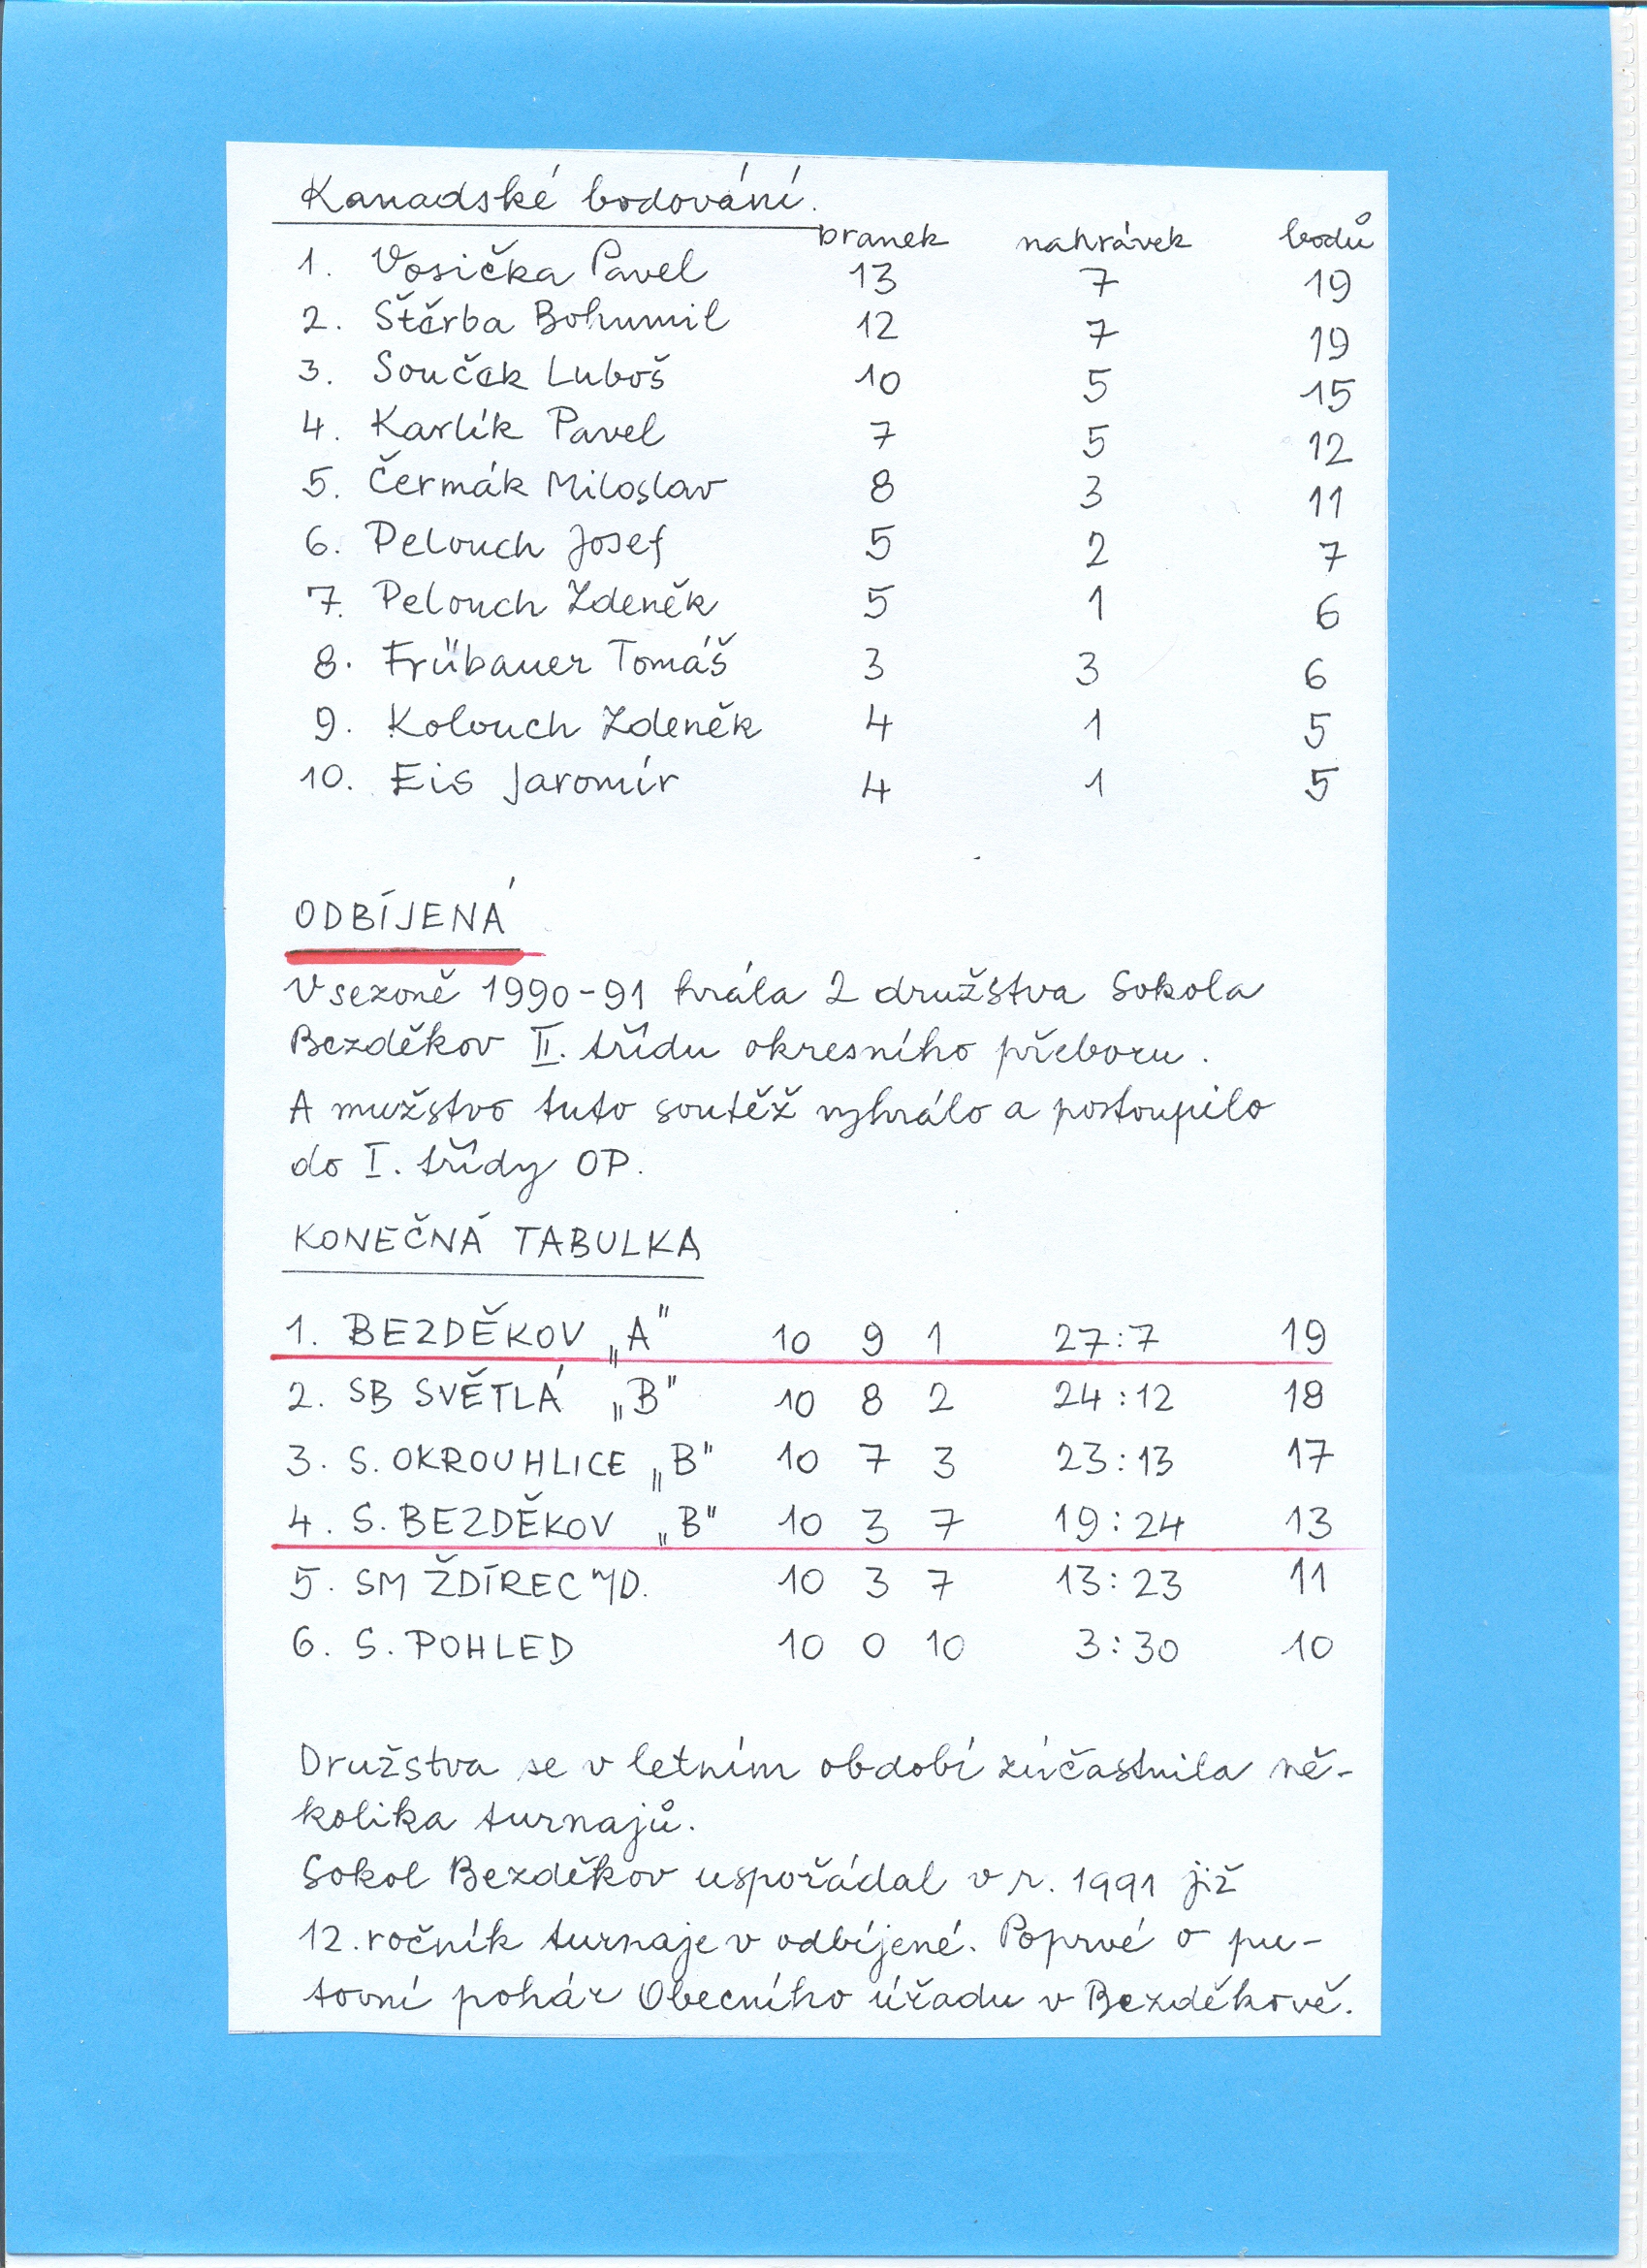 Kanadské bodování.
branek nahrávek bodů
1. Vosička Pavel 13 7 19
2. Štěrba Bohumil 12 7 19
3. Souček Luboš 10 5 15
4. Karlík Pavel 7 5 12
5. Čermák Miloslav 8 3 11
6. Pelouch Josef 5 2 7
7. Pelouch Zdeněk 5 1 6
8. Frübauer Tomáš 3 3 6
9. Kolouch Zdeněk 4 1 5
10. Eis Jaromír 4 1 5
ODBÍJENÁ
V sezoně 1990-91 hrála 2 družstva Sokola
Bezděkov II. třídu okresního přeboru.
A mužstvo tuto soutěž vyhrálo a postoupilo
do I. třídy OP.
KONEČNÁ TABULKA
1. BEZDĚKOV „A" 10 9 1 27:7 19
2. SB SVĚTLÁ „B" 10 8 2 24:12 18
3. S. OKROUHLICE „B" 10 7 3 23:13 17
4. S. BEZDĚKOV „B" 10 3 7 19:24 13
5. SM ŽDÍREC n/D. 10 3 7 13:23 11
6. S. POHLED 10 0 10 3:30 10
Družstva se v letním období zúčastnila ně-
kolika turnajů.
Sokol Bezděkov uspořádal v r. 1991 již
12. ročník turnaje v odbíjené. Poprvé o pu-
tovní pohár Obecního úřadu v Bezděkově.